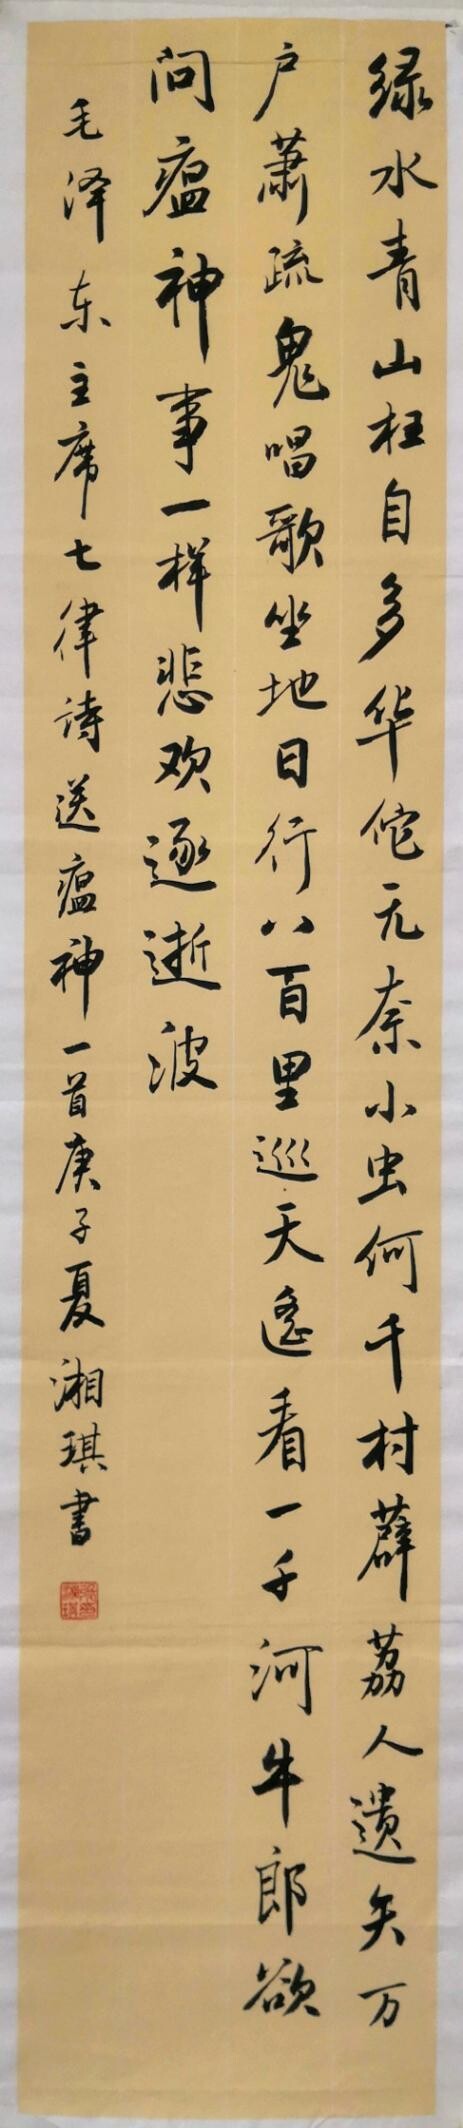 绿水青山枉自多华佗无奈小虫何千村薜荔人遗矢万
户蕭疏鬼唱歌坐地日行八百里巡天遥看一千河牛郎欲
问瘟神事一样悲欢逐逝波
毛泽东主席七律诗送瘟神一首庚子夏湘琪書